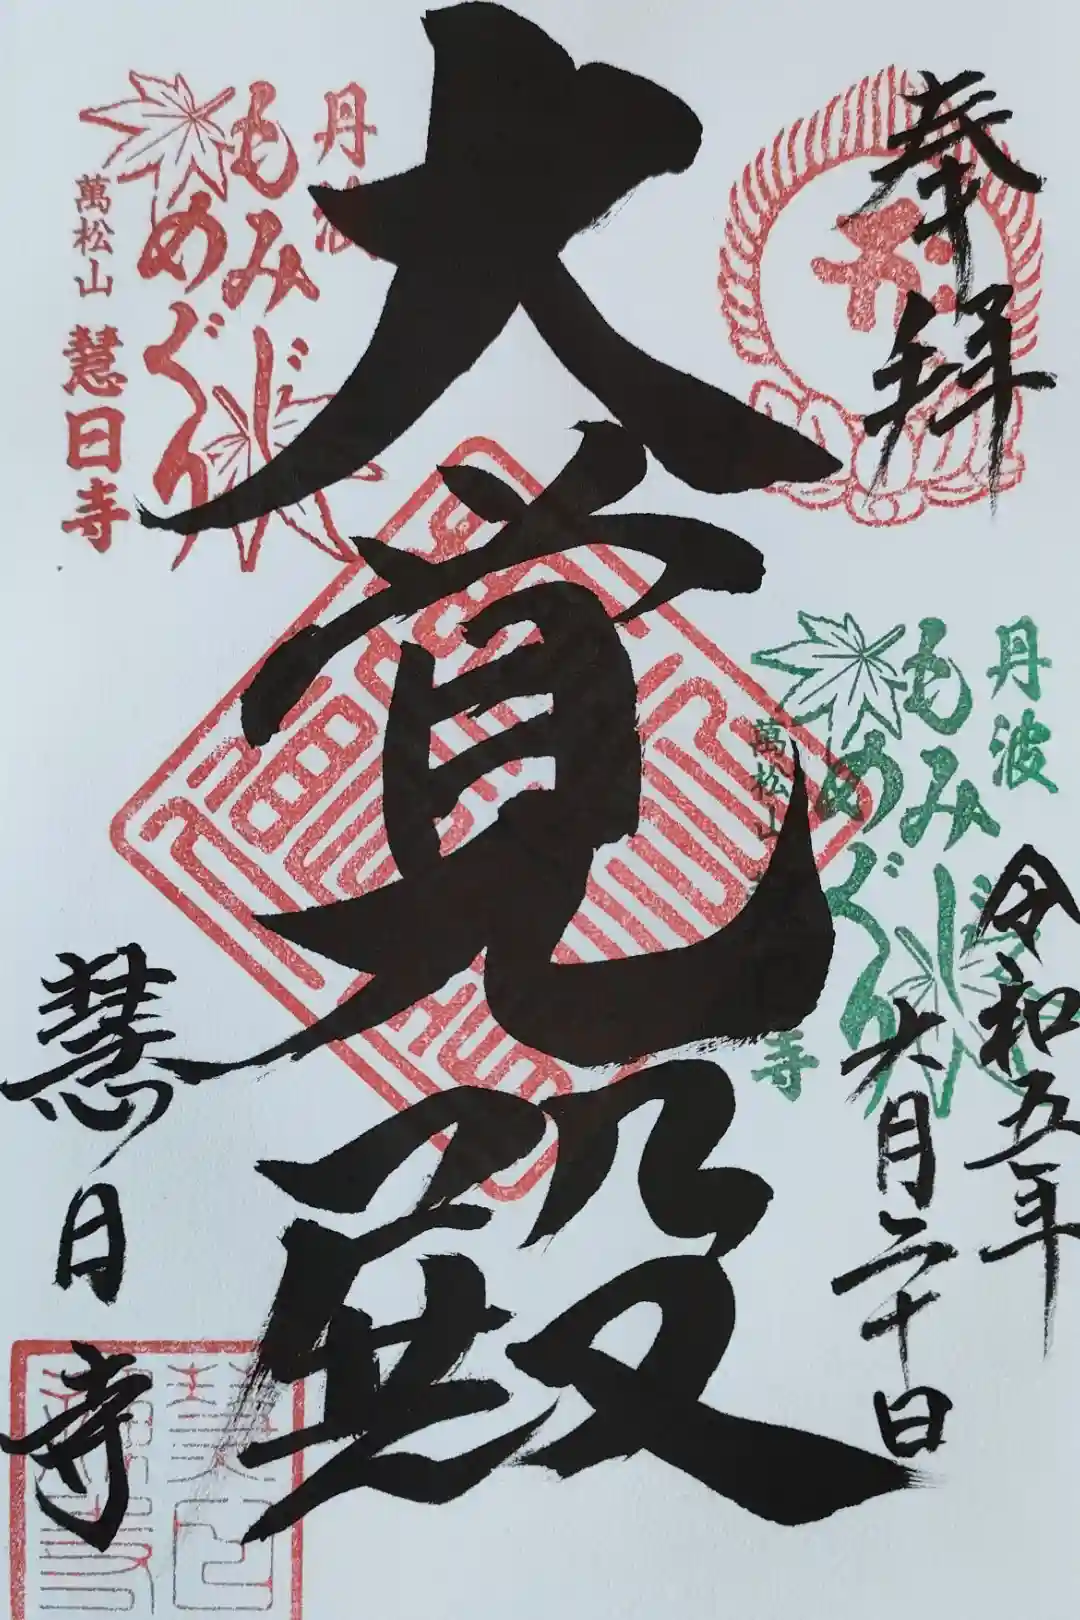 奉拝
令和五年
六月二十日
大覚殿
慧日寺
丹波
もみじ
めぐり
萬松山 慧日寺
丹波
もみじ
めぐり
萬松山
寺